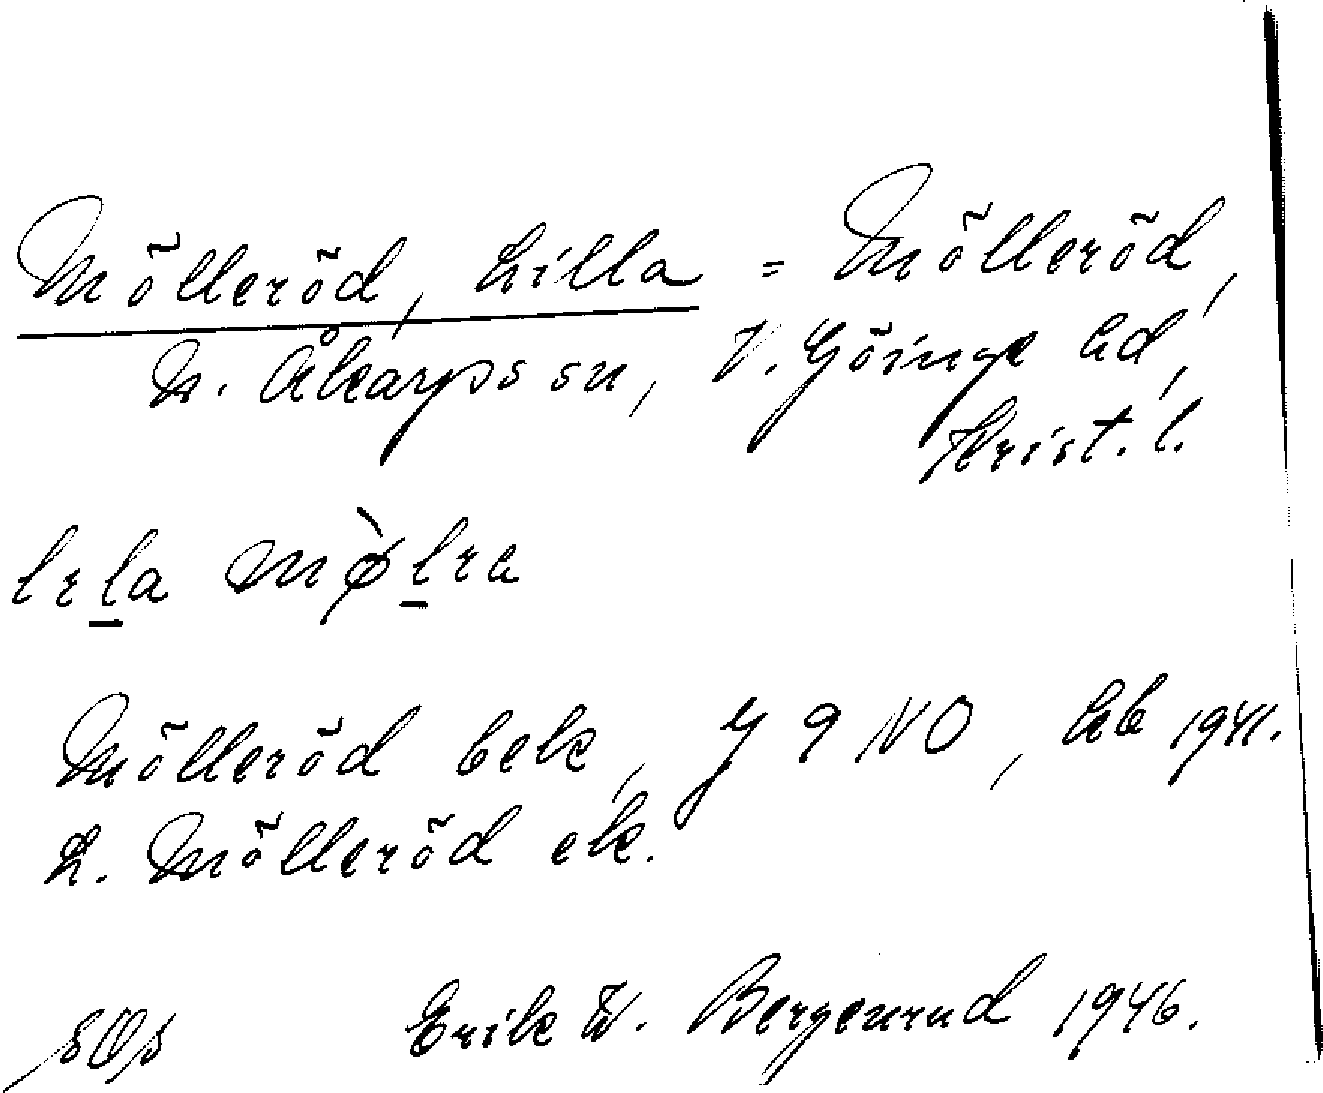 Mölleröd, Lilla = Mölleröd,
N. Åkarps sn, V. Göinge hd,
Krist. l.
lɪla mø̀lra
Mölleröd bebe, y 9 NO, hb 1941.
L. Mölleröd ek.
Erik W. Bergenrud 1946.